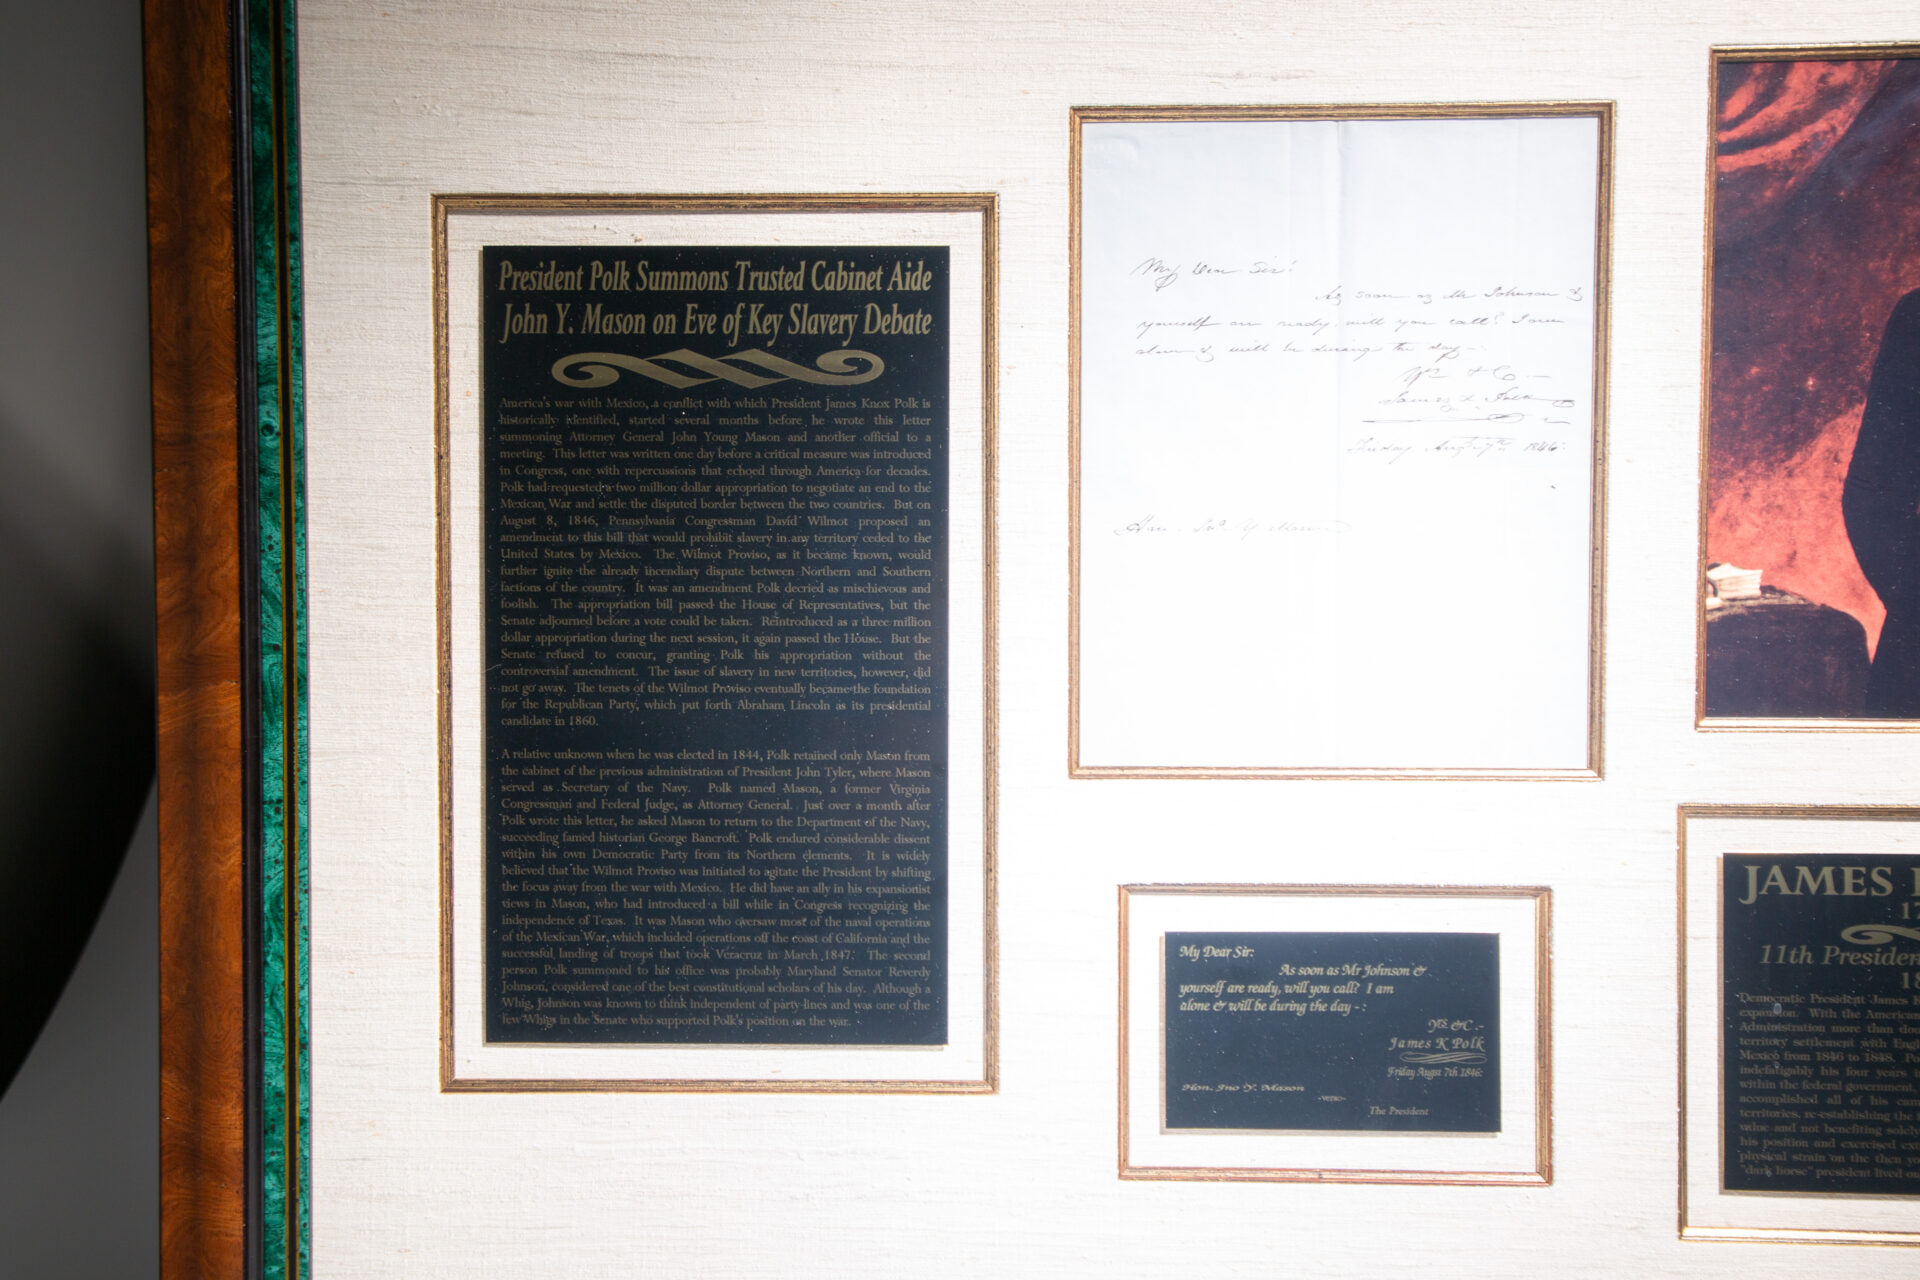 President Polk Summons Trusted Cabinet Aide
John Y. Mason on Eve of Key Slavery Debate
America's war with Mexico, a conflict with which President James Knox Polk is
historically identified, started several months before he wrote this letter
summoning Attorney General John Young Mason and another official to a
meeting. This letter was written one day before a critical measure was introduced
in Congress, one with repercussions that echoed through America for decades.
Polk had requested a two million dollar appropriation to negotiate an end to the
Mexican War and settle the disputed border between the two countries. But on
August 8, 1846, Pennsylvania Congressman David Wilmot proposed an
amendment to this bill that would prohibit slavery in any territory ceded to the
United States by Mexico. The Wilmot Proviso, as it became known, would
further ignite the already incendiary dispute between Northern and Southern
factions of the country. It was an amendment Polk decried as mischievous and
foolish. The appropriation bill passed the House of Representatives, but the
Senate adjourned before a vote could be taken. Reintroduced as a three million
dollar appropriation during the next session, it again passed the House. But the
Senate refused to concur, granting Polk his appropriation without the
controversial amendment. The issue of slavery in new territories, however, did
not go away. The tenets of the Wilmot Proviso eventually became the foundation
for the Republican Party, which put forth Abraham Lincoln as its presidential
candidate in 1860.
A relative unknown when he was elected in 1844, Polk retained only Mason from
the cabinet of the previous administration of President John Tyler, where Mason
served as Secretary of the Navy. Polk named Mason, a former Virginia
Congressman and Federal Judge, as Attorney General. Just over a month after
Polk wrote this letter, he asked Mason to return to the Department of the Navy,
succeeding famed historian George Bancroft. Polk endured considerable dissent
within his own Democratic Party from its Northern elements. It is widely
believed that the Wilmot Proviso was initiated to agitate the President by shifting
the focus away from the war with Mexico. He did have an ally in his expansionist
views in Mason, who had introduced a bill while in Congress recognizing the
independence of Texas. It was Mason who oversaw most of the naval operations
of the Mexican War, which included operations off the coast of California and the
successful landing of troops that took Veracruz in March 1847. The second
person Polk summoned to his office was probably Maryland Senator Reverdy
Johnson, considered one of the best constitutional scholars of his day. Although a
Whig, Johnson was known to think independent of party lines and was one of the
few Whigs in the Senate who supported Polk's position on the war.
My Dear Sir!
As soon as Mr Johnson &
yourself are ready, will you call? I am
alone & will be during the day -:
Yrs &C.-
James K Polk
Friday Augst 7th 1846:
Hon. Jno. Y. Mason
My Dear Sir:
As soon as Mr Johnson &
yourself are ready, will you call? I am
alone & will be during the day - :
Yrs &C .-
James K Polk
Friday Augst 7th 1846:
Hon. Jno Y. Mason
-verso-
The President
JAMES
17
11th Presiden
18
Democratic President James K
expansion. With the American
Administration more than dou
territory settlement with Engl
Mexico from 1846 to 1848. Po
indefatigably his four years i
within the federal government,
accomplished all of his cam
territories, re-establishing the
value and not benefiting solely
his position and exercised ex
physical strain on the then yo
"dark horse" president lived on